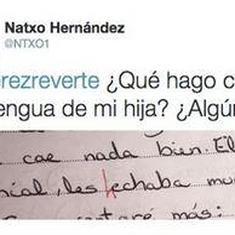 Natxo Hernández
@NTXO1
erezreverte ¿Qué hago c
engua de mi hija? ¿Algún
cae nada bien. El
cial, les echaba mu
más: